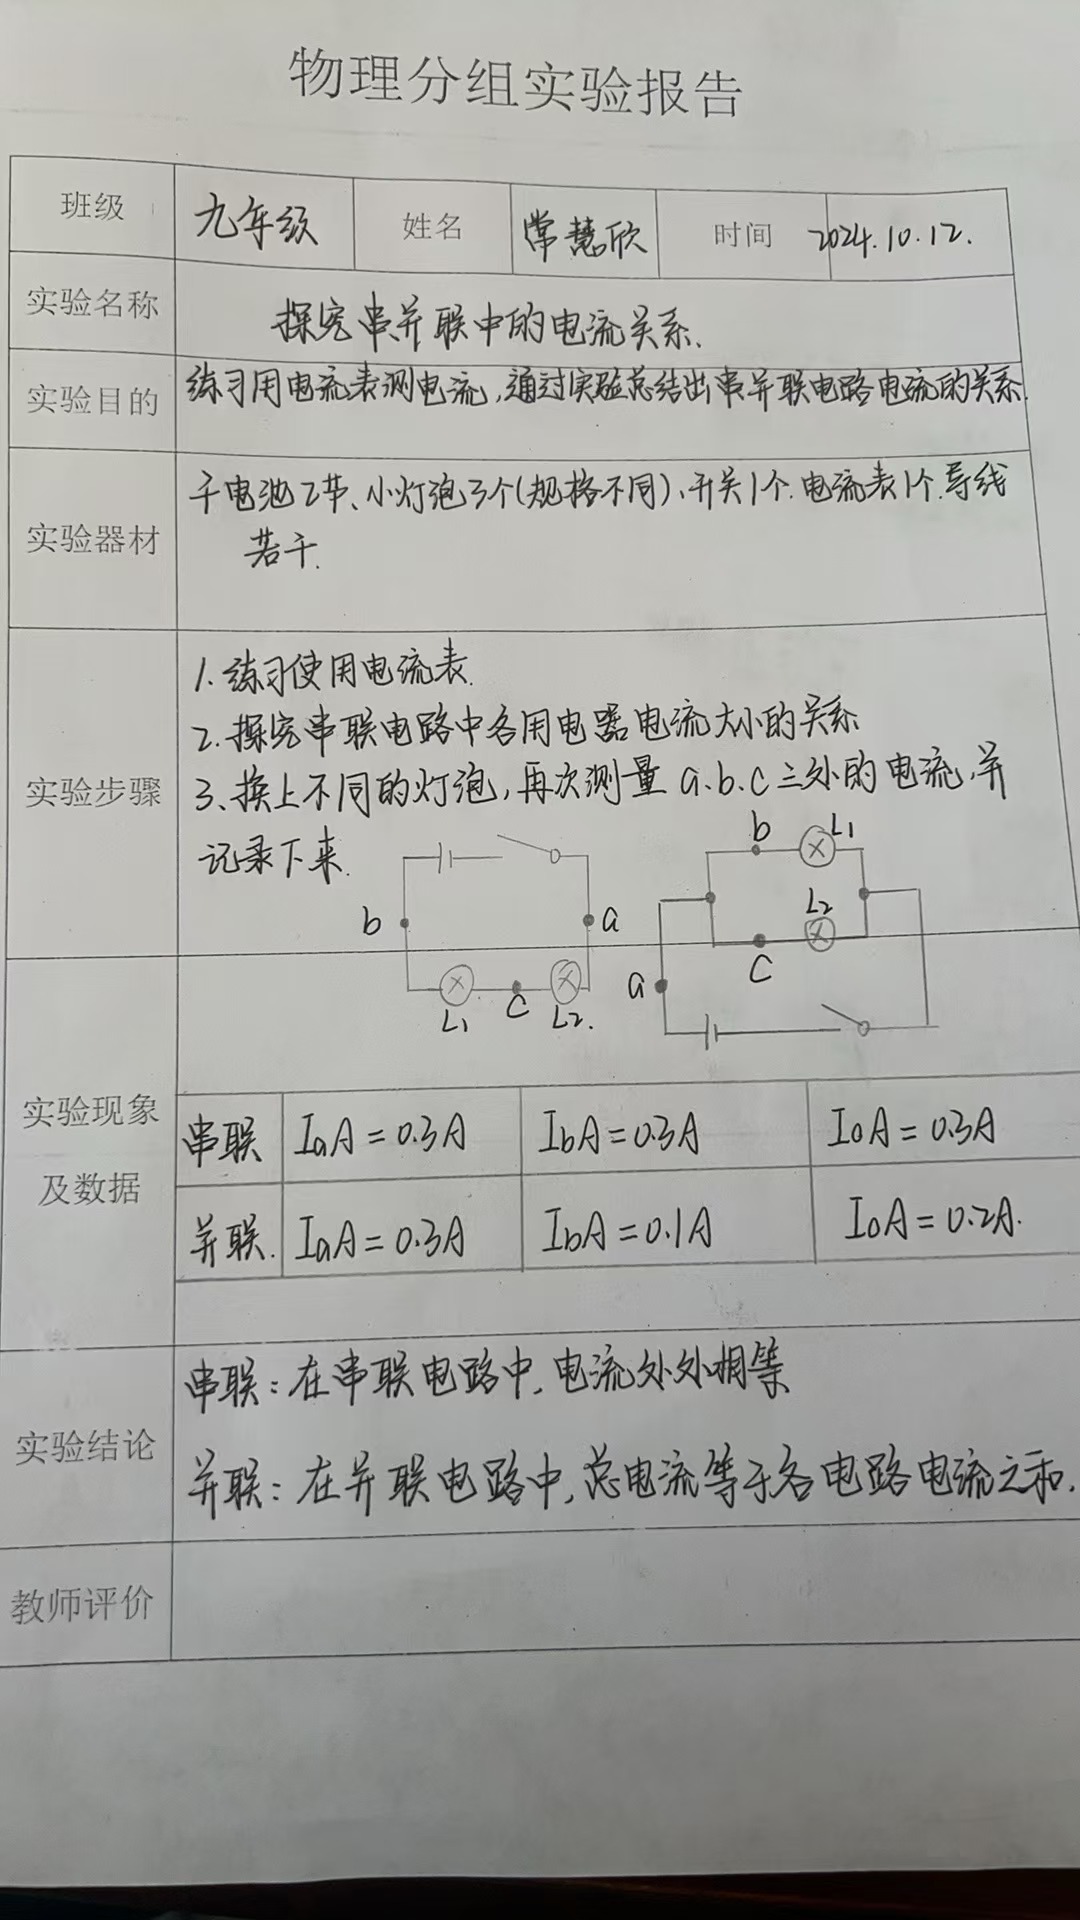 物理分组实验报告
班级 九年级 姓名 常慧欣 时间 2024.10.12.
实验名称 探究串并联中的电流关系.
实验目的 练习用电流表测电流,通过实验总结出串并联电路电流的关系.
实验器材 干电池2节、小灯泡3个(规格不同)、开关1个.电流表1个.导线
若干.
实验步骤
1.练习使用电流表.
2.探究串联电路中各用电器电流大小的关系
3、换上不同的灯泡,再次测量a.b.c三处的电流,并
记录下来.
b a L1 C L2.
b L1 L2 C a
实验现象
及数据
串联 IaA=0.3A IbA=0.3A IoA=0.3A
并联. IaA=0.3A IbA=0.1A IoA=0.2A.
实验结论
串联:在串联电路中,电流处处相等
并联:在并联电路中,总电流等于各电路电流之和.
教师评价